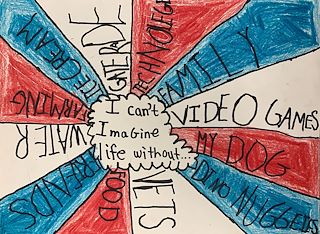 I can't
Imagine
life without...
GATERADE
FAMILY
VIDEO GAMES
MY DOG
DINO NUGGETS
FOOD
WATER
FARMING
ICE CREAM